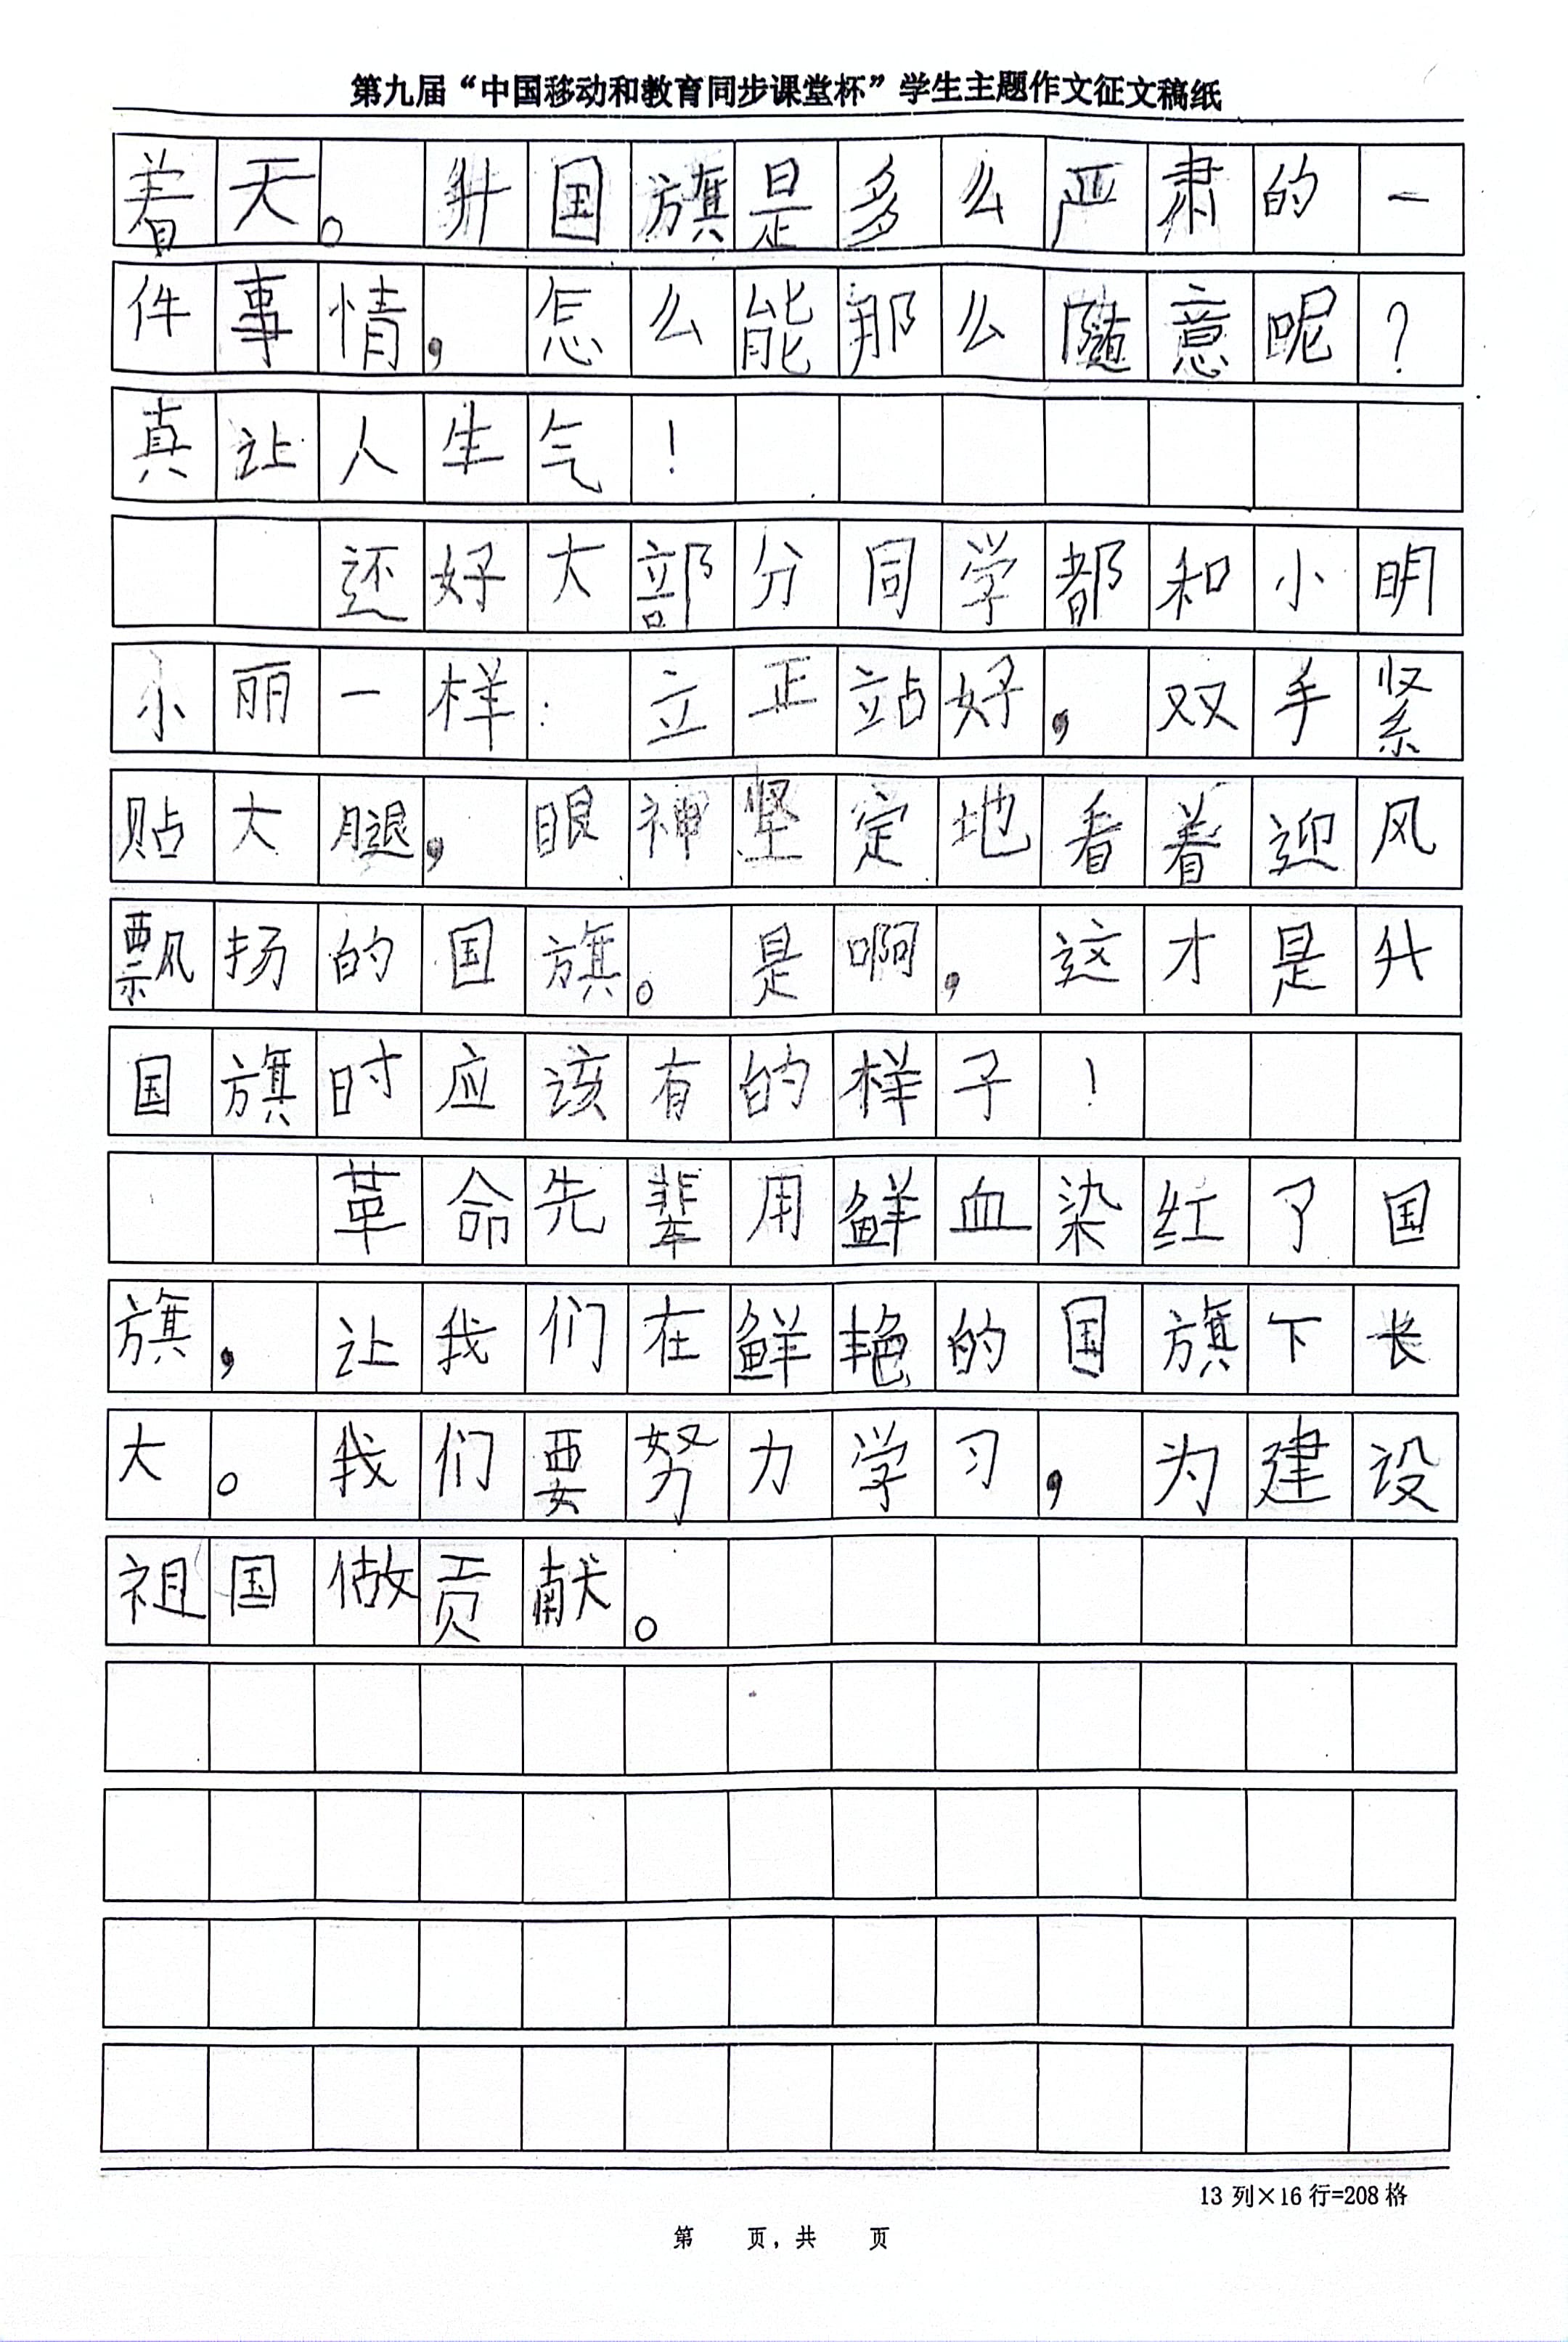 第九届“中国移动和教育同步课堂杯”学生主题作文征文稿纸
着天。升国旗是多么严肃的一
件事情，怎么能那么随意呢？
真让人生气！
还好大部分同学都和小明
小丽一样：立正站好，双手紧
贴大腿，眼神坚定地看着迎风
飘扬的国旗。是啊，这才是升
国旗时应该有的样子！
革命先辈用鲜血染红了国
旗，让我们在鲜艳的国旗下长
大。我们要努力学习，为建设
祖国做贡献。
13列×16行=208格
第 页，共 页